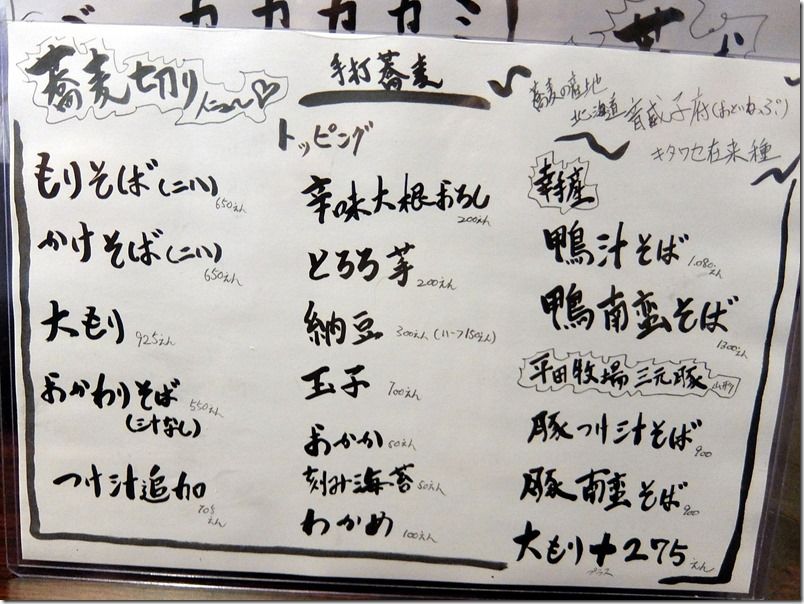 蕎麦切り
手打蕎麦
蕎麦の産地
北海道 音威子府(おといねっぷ)
キタワセ在来種
もりそば(二八)
650えん
かけそば(二八)
650えん
大もり 925えん
おかわりそば 550えん
(汁なし)
つけ汁追加
えん
トッピング
辛味大根おろし
200えん
とろろ芋 200えん
納豆 300えん(ハーフ150えん)
玉子 100えん
おかか 50えん
刻み海苔 50えん
わかめ 100えん
幸手産
鴨汁そば 1.080えん
鴨南蛮そば
1300えん
平田牧場 三元豚 山形
豚つけ汁そば 900
豚南蛮そば 900
大もり+275えん
プラス